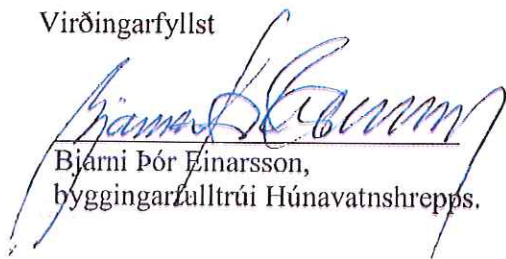 Virðingarfyllst
Bjarni Þór Einarsson,
byggingarfulltrúi Húnavatnshrepps.